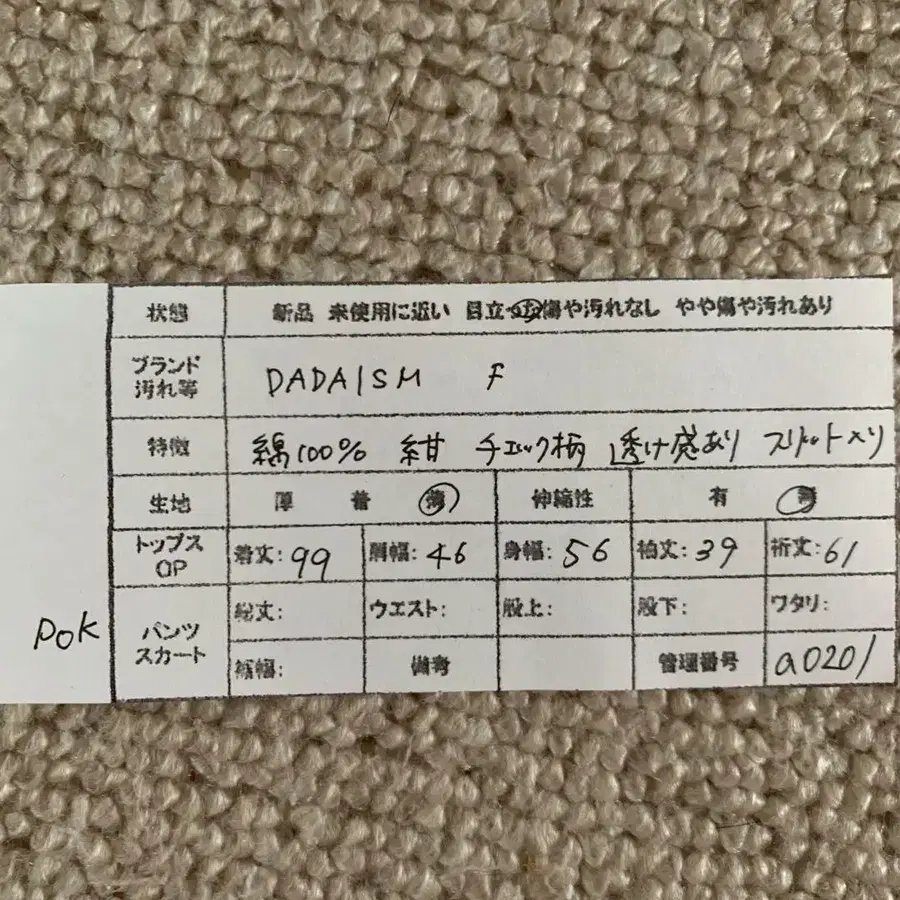 状態 新品 未使用に近い 目立った傷や汚れなし やや傷や汚れあり
ブランド
汚れ等 DADAISM F
特徴 綿100% 紺 チェック柄 透け感あり スリット入り
生地 厚 普 薄 伸縮性 有 無
トップス
OP 着丈: 99 肩幅: 46 身幅: 56 袖丈: 39 裄丈: 61
パンツ
スカート 総丈: ウエスト: 股上: 股下: ワタリ:
裾幅: 備考 管理番号 a0201
POK